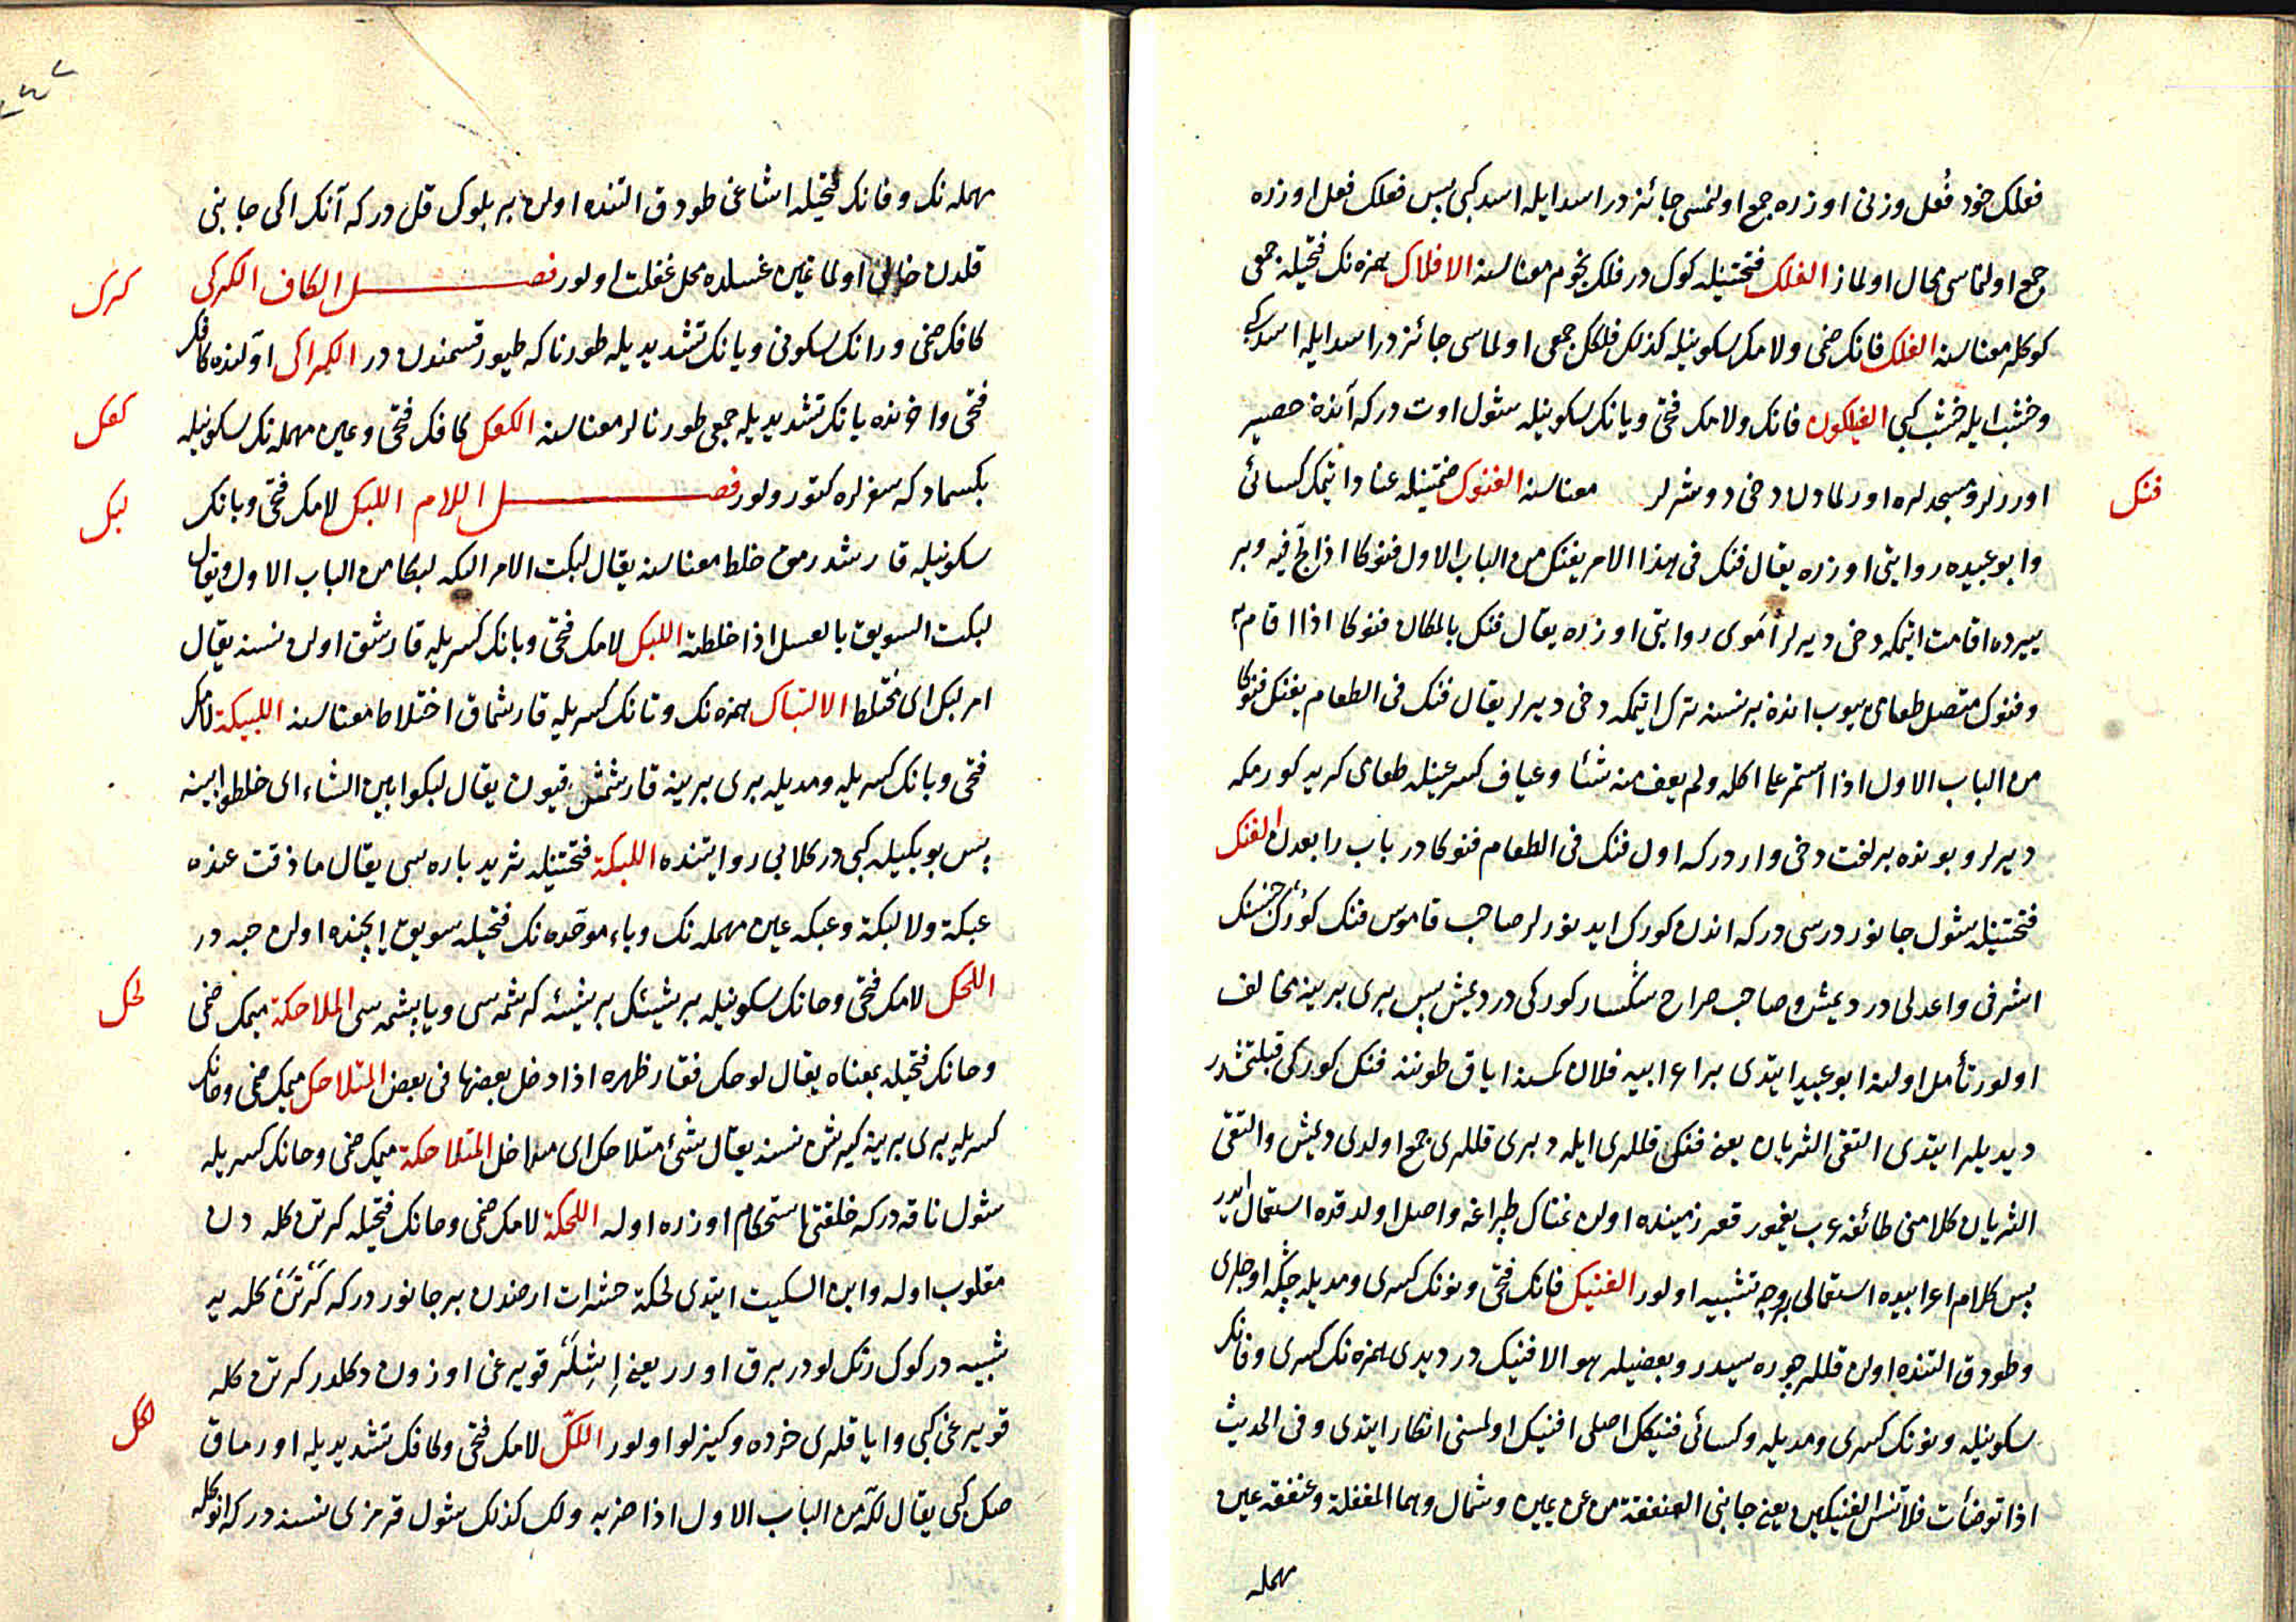 فعلک خود فُعل وزنی اوزره جمع اولنمسی جائزدر اسد ایله اسد کبی پس فعلک فعل اوزره
جمع اولنماسی محال اولماز الفلک فتحتینله کوک در فلک نجوم معناسنه الافلاک همزه نک فتحیله جمعی
کوکلر معناسنه الفلک فانک ضمی ولامک سکونیله کذلک فلکک جمعی اولماسی جائزدر اسد ایله اسد کبی
وخشب ایله خشب کبی الفیلکون فانک ولامک فتحی ویانک سکونیله شول اوت درکه آندن حصیر
فنک
اوررلر ومسجدلره اورلمادن دخی دوشرلر معناسنه الفنوک ضمتینله عناد ایتمک کسائی
وابو عبیده روایتی اوزره یقال فنک فی هذا الامر یفنک من الباب الاول فنوکا اذا لج فیه وبر
ییرده اقامت ایتمکه دخی دیرلر اموی روایتی اوزره یقال فنک بالمکان فنوکا اذا اقام به
وفنوک متصل طعامی ییوب اندن بر نسنه ترک ایتمکه دخی دیرلر یقال فنک فی الطعام یفنک فنوکا
من الباب الاول اذا استمر علی اکله ولم یعف منه شئا وعیاف کسر عینله طعامی کریه کورمکه
دیرلر وبونده بر لغت دخی واردرکه اول فنک فی الطعام فنوکا در باب رابعدن الفنک
فتحتینله شول جانور درسی درکه اندن کورک ایدینورلر صاحب قاموس فنک کورک جنسنک
اشرفی واعدلی در دیمش وصاحب صراح سکسار کورکی در دیمش پس بری برینه مخالف
اولور تأمل اولنه ابو عبید ایتدی بر اعرابیه فلان کمسنه ایاق طوننه فنک کورکی قبلتمشدر
دیدیلر ایتدی التقی الثریان یعنی فنکک قللری ایله دبری قللری جمع اولدی دیمش والتقی
الثریان کلامنی طائفه عرب یغمور قعر زمینده اولن نمناک طپراغه واصل اولدقده استعمال ایدر
پس کلام اعرابیده استعمالی بر وجه تشبیه اولور الفنیک فانک فتحی ونونک کسری ومدیله چکه اوجلری
وطودق التنده اولن قللر چوره سیدر وبعضیلر هو الافنیک در دیدی همزه نک کسری وفانک
سکونیله ونونک کسری ومدیله وکسائی فنیکک اصلی افنیک اولمسنی انکار ایتدی وفی الحدیث
اذا توضأت فلا تنس الفنیکین یعنی جانبی العنفقة من عن یمین وشمال وهما المغفلة وعنفقه عین
مهمله
مهمله نک وفانک فتحیله اشاغی طودق التنده اولن بر بلوک قل درکه آنک ایکی جانبی
قلدن خالی اولماغین غسلده محل غفلت اولور فصل الکاف الکرکی
کرک
کافک ضمی ورانک سکونی ویانک تشدیدیله طورنا که طیور قسمندن در الکراکی اولنده کافک
فتحی واخرنده یانک تشدیدیله جمعی طورنالر معناسنه الکعک کافک فتحی وعین مهمله نک سکونیله
کعک
بکسماد که سفرلره کتورولور فصل اللام اللبک لامک فتحی وبانک
لبک
سکونیله قارشدرمق خلط معناسنه یقال لبکت الامر البکه لبکا من الباب الاول ویقال
لبکت السویق بالعسل اذا خلطته اللبک لامک فتحی وبانک کسریله قارشق اولن نسنه یقال
امر لبک ای مختلط الالتباک همزه نک وتانک کسریله قارشماق اختلاط معناسنه اللبیکة لامک
فتحی وبانک کسریله ومدیله بری برینه قارشمش قیون یقال لبکوا بین الشاء ای خلطوا بینه
پس بو بکیله کبی در کلابی روایتنده اللبکة فتحتینله ثرید پاره سی یقال ما ذقت عنده
عبکة ولا لبکة وعبکه عین مهمله نک وباء موحده نک فتحیله سویق ایچنده اولن حبه در
اللحک لامک فتحی وحانک سکونیله بر شیئک بر شیئه کرشمه سی ویاپشمه سی الملاحکة میمک ضمی
لحک
وحانک فتحیله بمعناه یقال لوحک فقار ظهره اذا دخل بعضها فی بعض المتلاحک میمک ضمی وحانک
کسریله بری برینه کیرمش نسنه یقال شئ متلاحک ای متداخل المتلاحکة میمک ضمی وحانک کسریله
شول ناقه درکه خلقتی استحکام اوزره اوله اللحکة لامک ضمی وحانک فتحیله کرتن کله دن
مقلوب اوله وابن السکیت ایتدی لحکة حشرات ارضدن بر جانور درکه کرتن کله یه
شبیه در کوک رنک لودر برق اورر یعنی اِشلَر قویرغی اوزون دکلدر کرتن کله
قویرغی کبی وایاقلری خرده وکیزلو اولور اللکّ لامک فتحی وکافک تشدیدیله اورماق
لکک
صک کبی یقال لکّه من الباب الاول اذا ضربه ولک کذلک شول قرمزی نسنه درکه انوکله